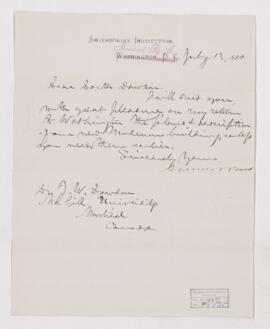 SMITHSONIAN INSTITUTION,
WASHINGTON, D.C. July 13, 1880.
Dear Doctor Dawson,
I will send you,
with great pleasure on my return
to Washington the plans & description
of our new Museum building unless
you need them earlier.
Sincerely Yours
Dr. J. W. Dawson
McGill University
Montreal
Canada